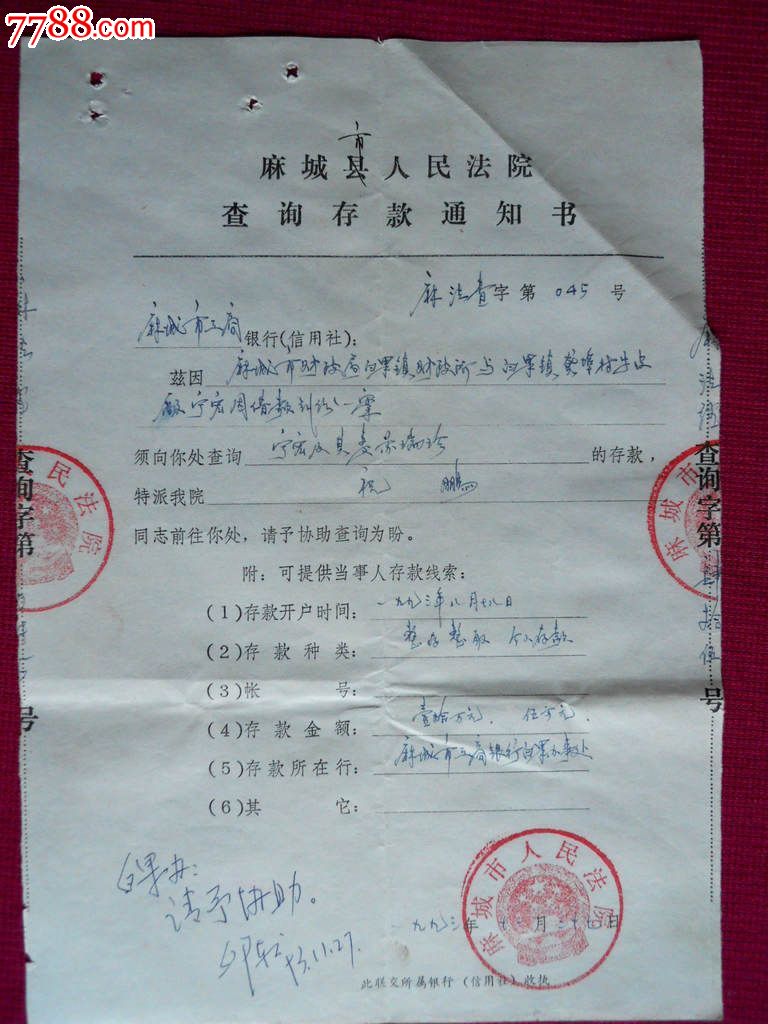 7788.com
市
麻城县人民法院
查询存款通知书
麻法查字第045号
麻城市工商银行(信用社)：
兹因麻城市财政局白果镇财政所与白果镇
宁宏周借款纠纷一案
须向你处查询宁宏及其妻 的存款，
特派我院祝鹏
同志前往你处，请予协助查询为盼。
附：可提供当事人存款线索：
(1)存款开户时间：一九九三年八月十八日
(2)存款种类：整存整取 个人存款
(3)帐号：
(4)存款金额：壹拾万元．伍万元．
(5)存款所在行：麻城市工商银行白果办事处
(6)其它：
白果办：
请予协助。
93.11.27.
一九九三年 月二十七日
此联交所属银行（信用社）收执
麻城市人民法院
查询字第
号
人民法院
查询字第
号
麻城市